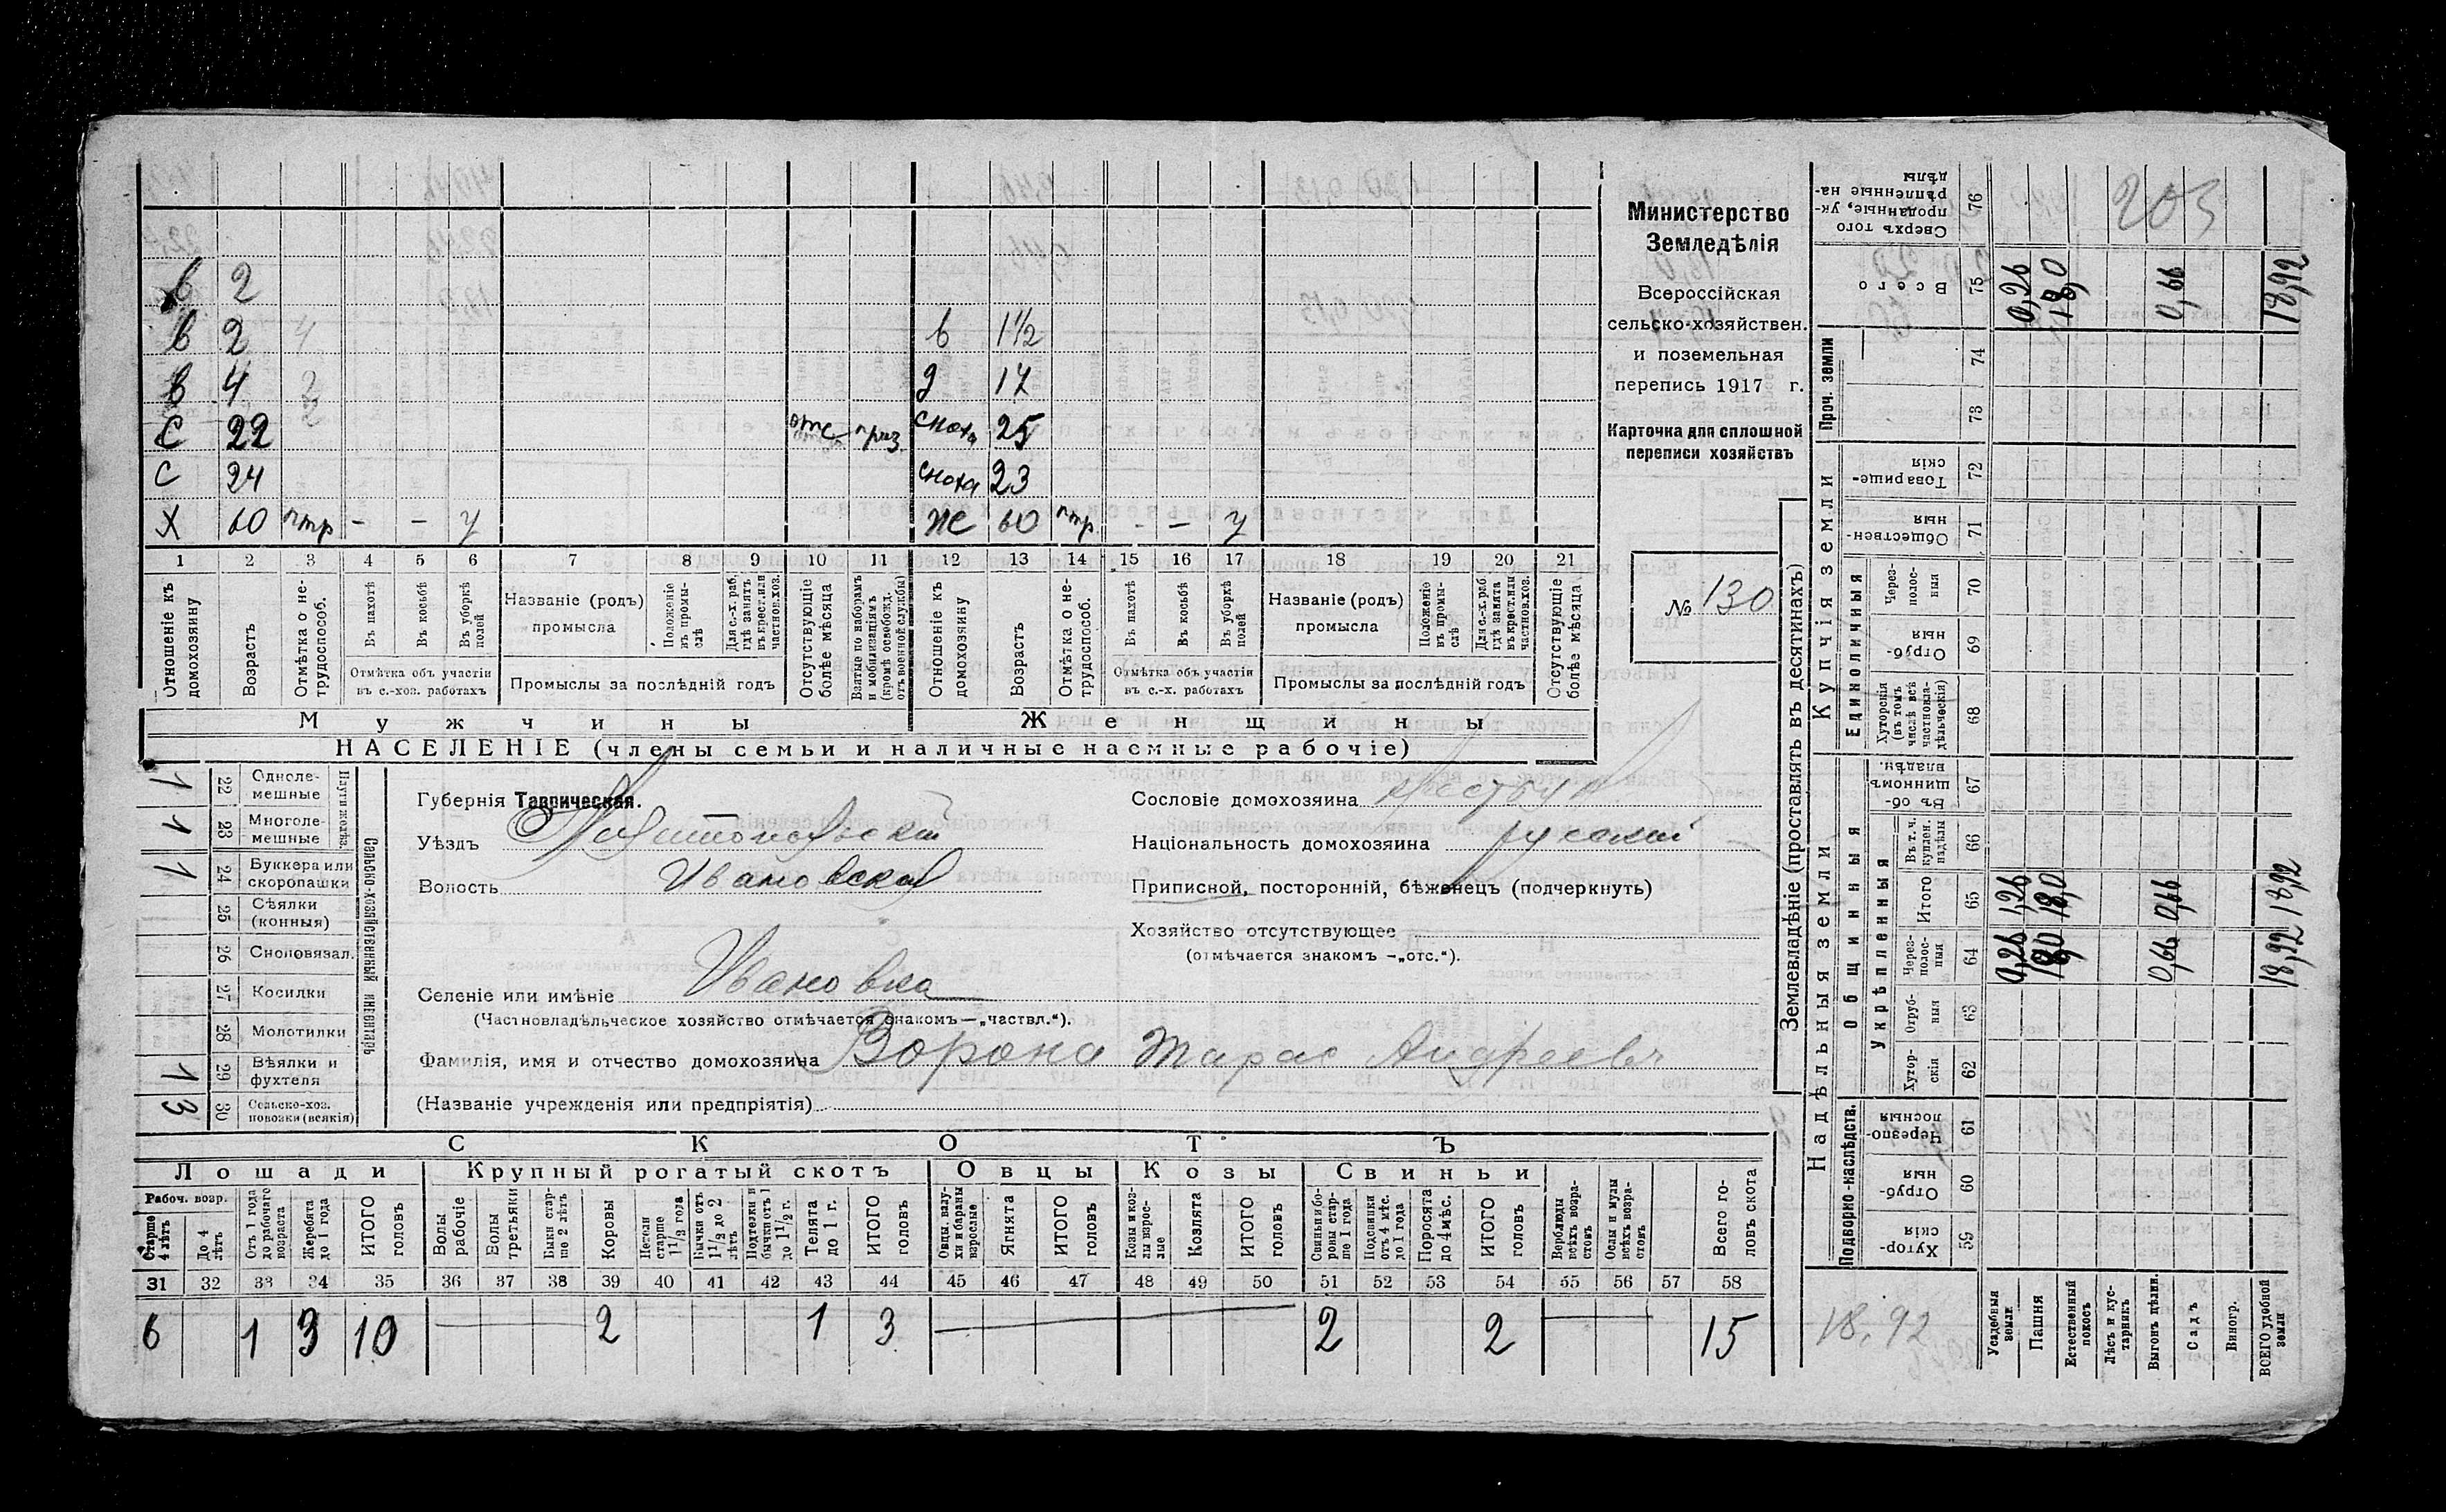 в 2
в 2 4 в 1½
в 4 2 д 17
С 22 2 отс приз. сноха 25
С 24 сноха 23
Х 60 нтр - - у Ж 60 нтр. - - у
1 2 3 4 5 6 7 8 9 10 11 12 13 14 15 16 17 18 19 20 21
Отношеніе къ домохозяину
Возрастъ
Отмѣтка о нетрудоспособ.
Въ пахотѣ
Въ косьбѣ
Въ уборкѣ полей
Отмѣтка объ участіи въ с.-хоз. работахъ
Названіе (родъ) промысла
Положеніе въ промыслѣ
Для с.-х. раб. гдѣ занятъ въ крест. или частнов. хоз.
Промыслы за послѣдній годъ
Отсутствующіе болѣе мѣсяца
Взятые по наборамъ и мобилизаціямъ (кромѣ освобожд. отъ военной службы)
Отношеніе къ домохозяину
Возрастъ
Отмѣтка о нетрудоспособ.
Въ пахотѣ
Въ косьбѣ
Въ уборкѣ полей
Отмѣтка объ участіи въ с.-х. работахъ
Названіе (родъ) промысла
Положеніе въ промыслѣ
Для с.-х. раб. гдѣ занята въ крест. или частнов. хоз.
Промыслы за послѣдній годъ
Отсутствующіе болѣе мѣсяца
Мужчины Женщины
НАСЕЛЕНІЕ (члены семьи и наличные наемные рабочіе)
Министерство
Земледѣлія
Всероссійская
сельско-хозяйствен.
и поземельная
перепись 1917 г.
Карточка для сплошной
переписи хозяйствъ
№ 130
1 22 Однолемешные
1 23 Многолемешные
Плуги желѣз.
1 24 Буккера или скоропашки
25 Сѣялки (конныя)
26 Сноповязал.
27 Косилки
28 Молотилки
1 29 Вѣялки и фухтеля
3 30 Сельско-хоз. повозки (всякія)
Сельско-хозяйственный инвентарь
Губернія Таврическая.
Уѣздъ Мелитопольскій
Волость Ивановская
Селеніе или имѣніе Ивановка
(Частновладѣльческое хозяйство отмѣчается знакомъ—„частвл.“).
Фамилія, имя и отчество домохозяина Ворона Тарас Андреевъ
(Названіе учрежденія или предпріятія)
Сословіе домохозяина
Національность домохозяина русскій
Приписной, посторонній, бѣженецъ (подчеркнуть)
Хозяйство отсутствующее
(отмѣчается знакомъ -„отс.“).
СКОТЪ
Лошади Крупный рогатый скотъ Овцы Козы Свиньи
Рабоч. возр.
Старше 4 лѣтъ
До 4 лѣтъ
Отъ 1 года до рабочаго возраста
Жеребята до 1 года
ИТОГО головъ
Волы рабочіе
Волы третьяки
Быки старше 2 лѣтъ
Коровы
Нетели старше 1 1/2 года
Бычки отъ 1 1/2 до 2 лѣтъ
Подтелки и бычки отъ 1 до 1 1/2 г.
Телята до 1 г.
ИТОГО головъ
Овцы, валухи и бараны взрослые
Ягнята
ИТОГО головъ
Козы и козлы взрослые
Козлята
ИТОГО головъ
Свиньи и боровы старше 1 года
Подсвинки отъ 4 мѣс. до 1 года
Поросята до 4 мѣс.
ИТОГО головъ
Верблюды всѣхъ возрастовъ
Ослы и мулы всѣхъ возрастовъ
Всего головъ скота
31 32 33 34 35 36 37 38 39 40 41 42 43 44 45 46 47 48 49 50 51 52 53 54 55 56 57 58
6 1 3 10 2 1 3 2 2 15
Землевладѣніе (проставлять въ десятинахъ)
76 Сверхъ того проданные, укрѣпленные надѣлы 203
75 Всего 0,26 18,0 0,66 18,92
Проч. земли
74
73
Купчія земли
72 Товарищескія
71 Общественныя
Единоличныя
70 Черезполосныя
69 Отрубныя
68 Хуторскія (въ томъ числѣ всѣ частновладѣльческія)
Надѣльныя земли
Общинныя
67 Въ общинномъ владѣн.
Укрѣпленныя
66 Въ т. ч. куплен. надѣлы
65 Итого 1,26 18,0 0,66 18,92
64 Черезполосныя 0,26 18,0 0,66 18,92
63 Отрубныя
62 Хуторскія
Подворно-наслѣдств.
61 Черезполосныя
60 Отрубныя
59 Хуторскія
Усадебныя земли
Пашня
Естественный покосъ
Лѣсъ и кустарникъ
Выгонъ цѣлин.
Садъ
Виногр.
ВСЕГО удобной земли
18,92